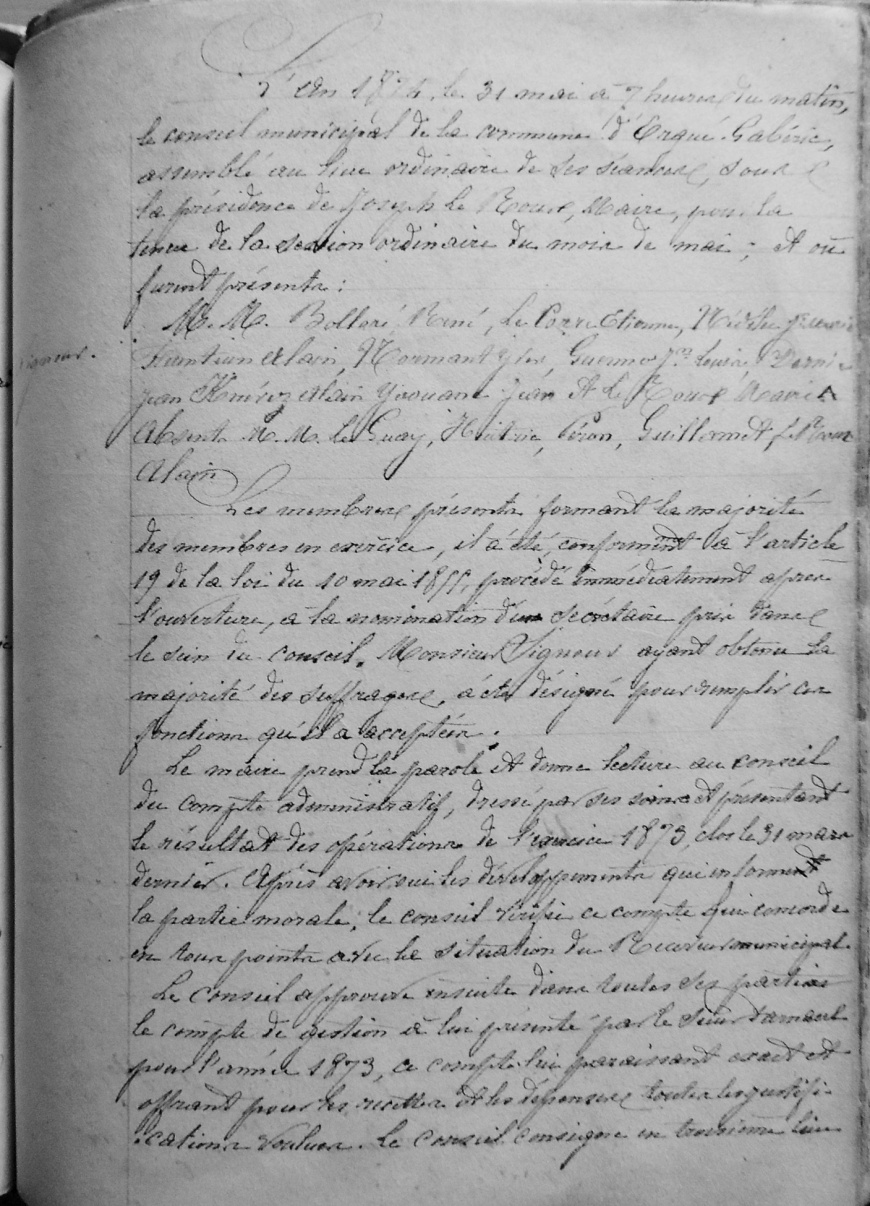 L'an 1874, le 31 mai à 7 heures du matin,
le conseil municipal de la commune d'Ergué-Gabéric,
assemblé au lieu ordinaire de ses séances, sous
la présidence de Joseph Le Roux, Maire, pour la
tenue de la session ordinaire du mois de mai ; et où
furent présents :
M. M. Bolloré René, Le Corre Etienne, Nédélec
Alain, Normant Yves, Guennou
Jean Alain Yvouanc Jean et Le Roux
Absents M. M. Le Guay, Péron, Guillermet, Le Roux
Alain
Les membres présents formant la majorité
des membres en exercice, il a été, conformént à l'article
19 de la loi du 10 mai 1855, procédé immédiatement après
l'ouverture, à la nomination d'un secrétaire pris dans
le sein du conseil. Monsieur Signour ayant obtenu la
majorité des suffrages, a été désigné pour remplir ces
fonctions qu'il a acceptées.
Le maire prend la parole et donne lecture au conseil
du compte administratif, dressé par ses soins et présentant
le résultat des opérations de l'exercice 1873, clos le 31 mars
dernier. Après avoir oui les développements qui en forment
la partie morale, le conseil vérifie ce compte qui concorde
en tous points avec la situation du Receveur municipal.
Le Conseil approuve ensuite dans toutes ses parties
le compte de gestion à lui présenté par le Sieur
pour l'année 1873, ce compte lui paraissant exact et
offrant pour les recettes et les dépenses toutes les justifi-
cations voulues. Le Conseil consigne en troisième lieu